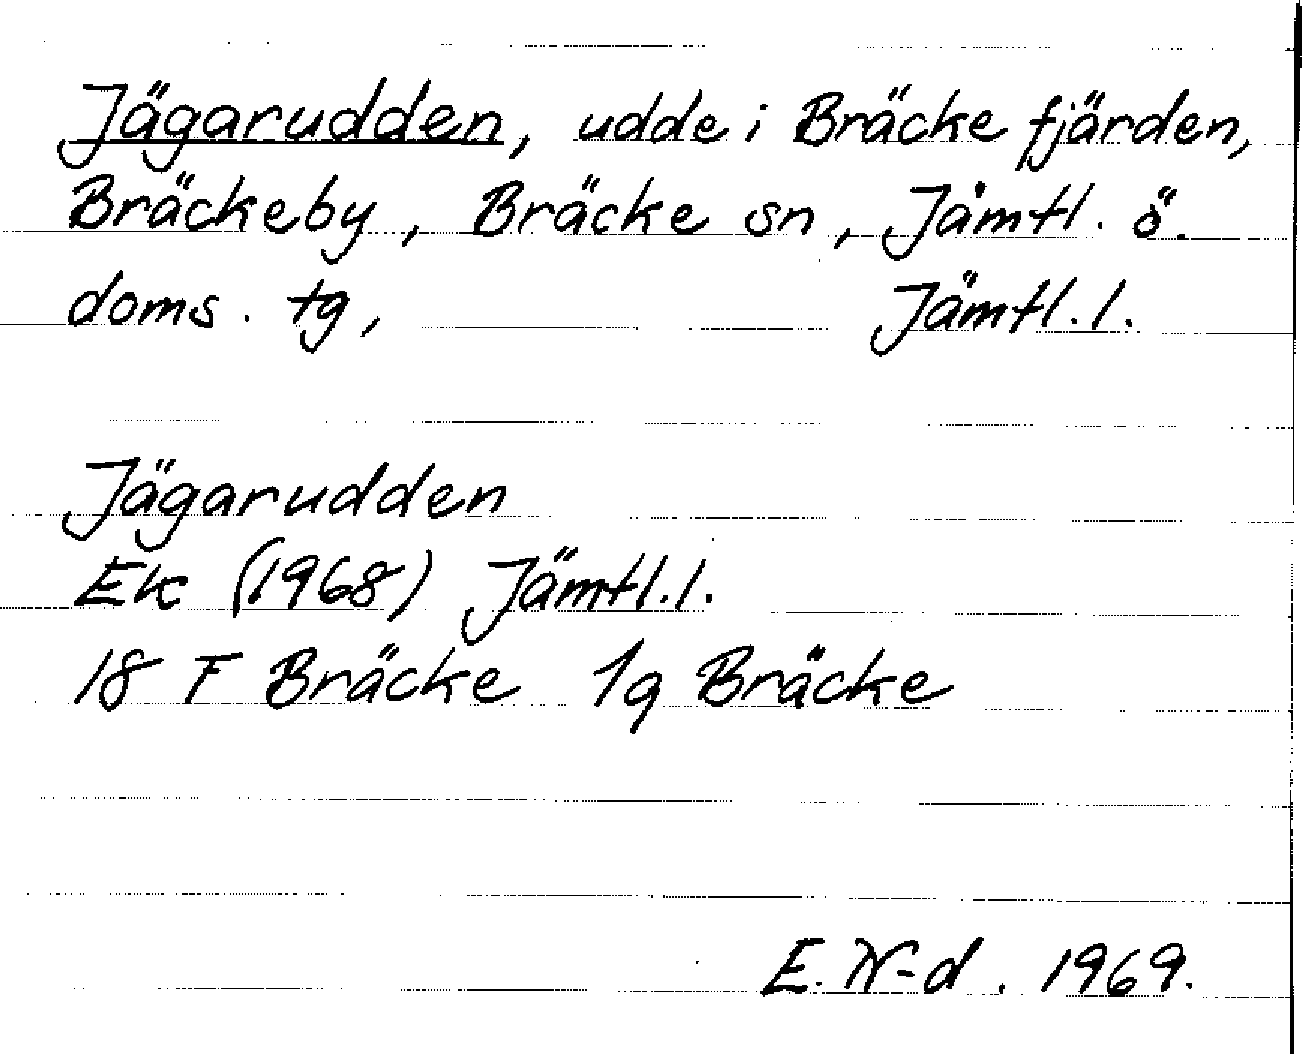 Jägarudden, udde i Bräckefjärden,
Bräckeby, Bräcke sn, Jämtl. ö.
doms. tg, Jämtl. l.
Jägarudden
Ek (1968) Jämtl. l.
18 F Bräcke 1g Bräcke
E. W-d. 1969.